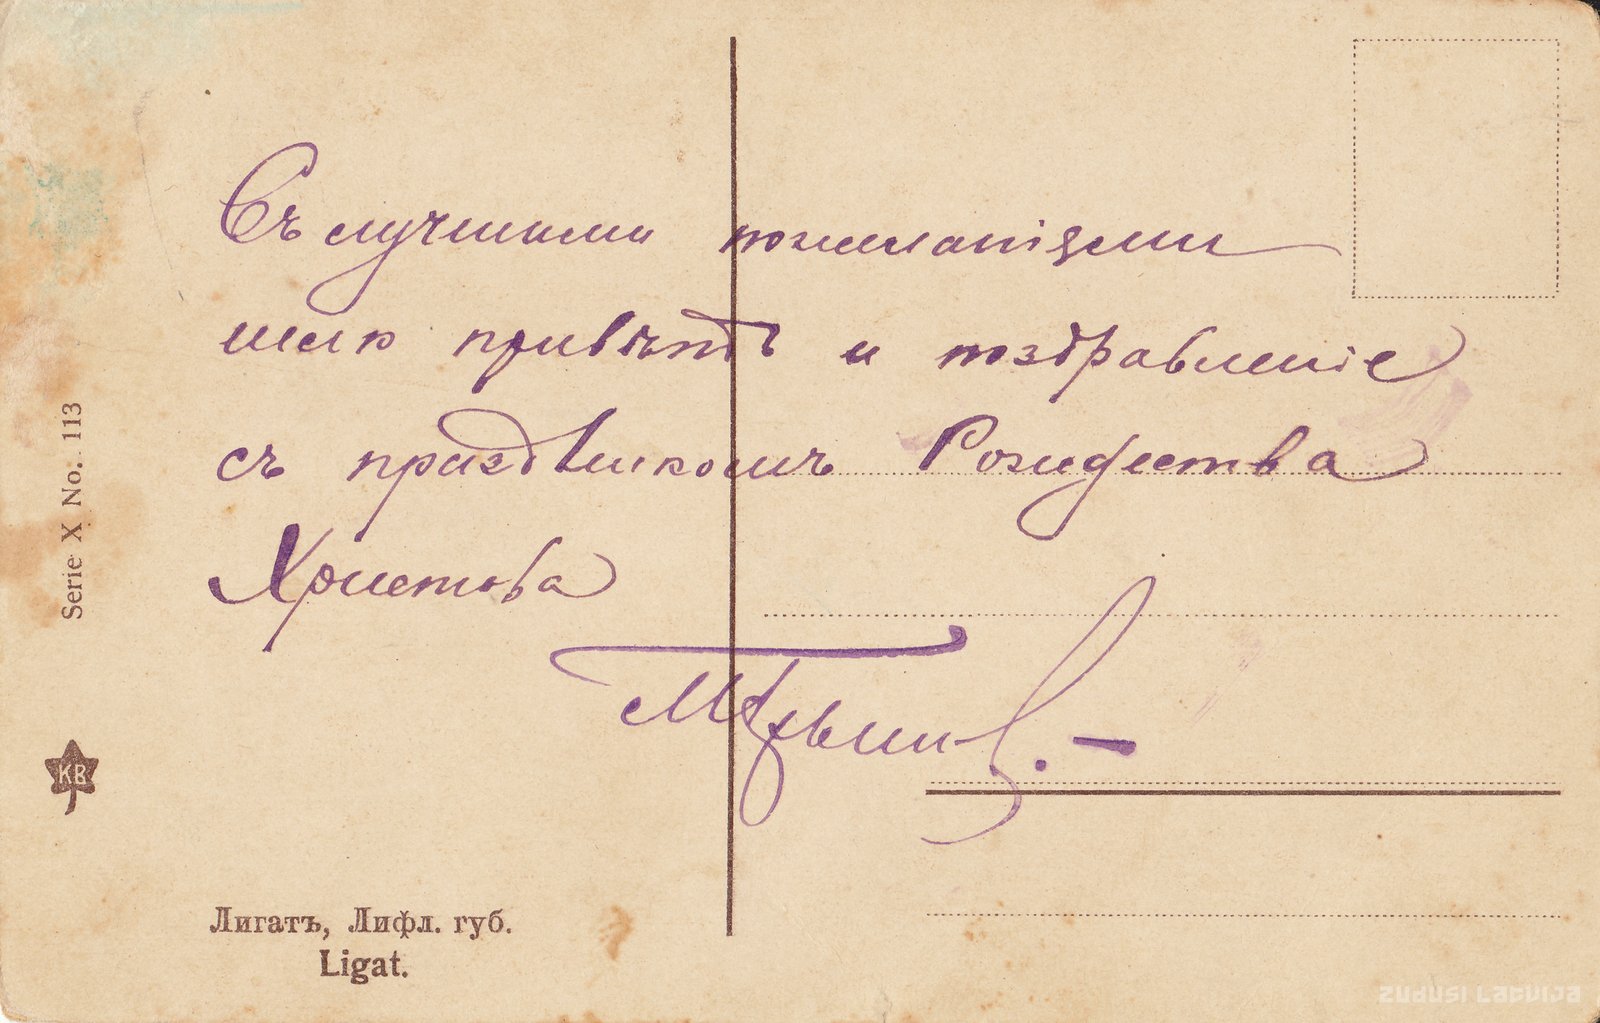 Съ лучшими пожеланіями
шлю привѣтъ и поздравленіе
съ праздникомъ Рождества
Христова
Serie X No. 113
KB
Лигатъ, Лифл. губ.
Ligat.
ZUDUSI LATVIJA